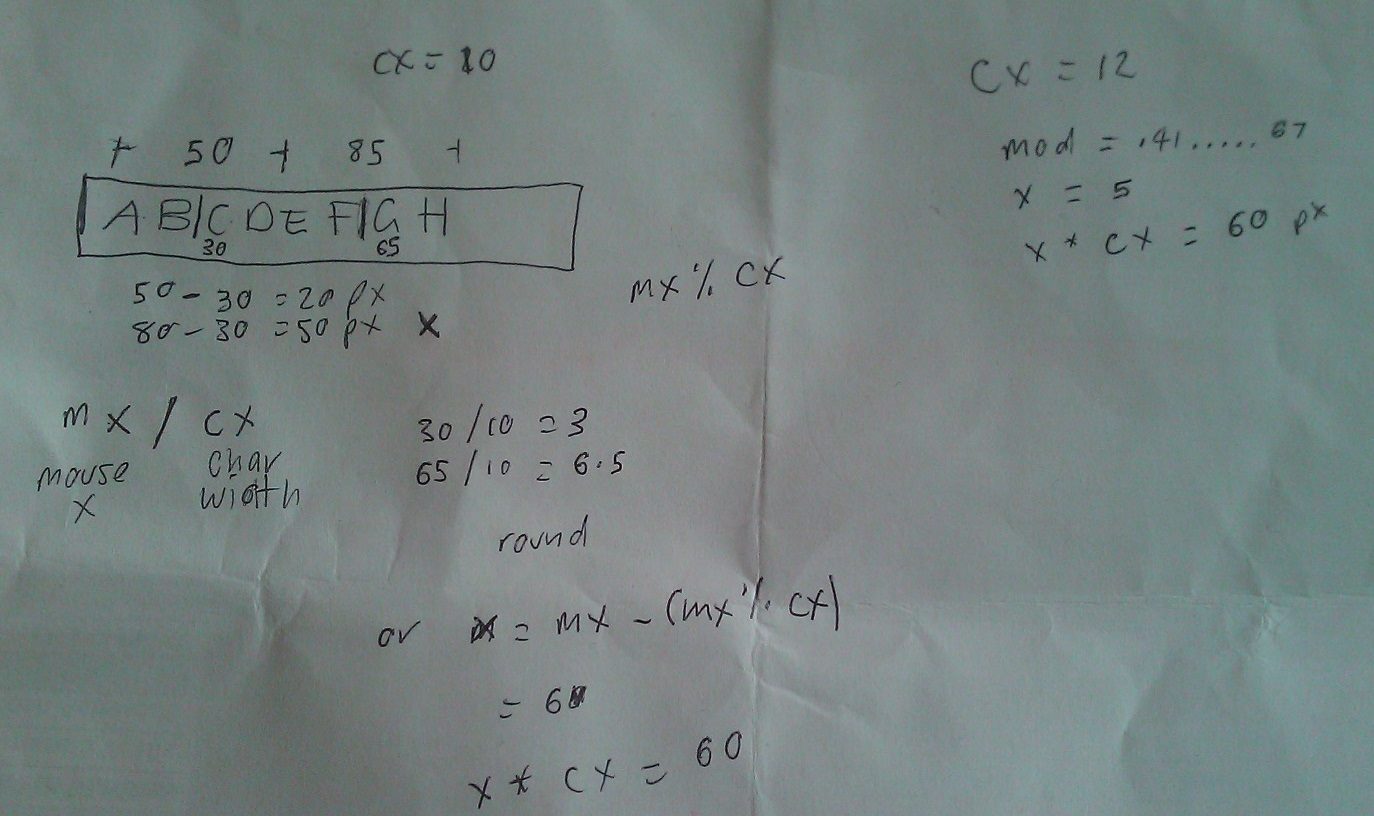 cx = 10
+ 50 + 85 +
A B|C D E F|G H
30 65
50 - 30 = 20 px
80 - 30 = 50 px x
mx % cx
mx / cx
mouse x
char width
30/10 = 3
65/10 = 6.5
round
or x = mx - (mx % cx)
= 60
x * cx = 60
cx = 12
mod = .41.....67
x = 5
x * cx = 60 px